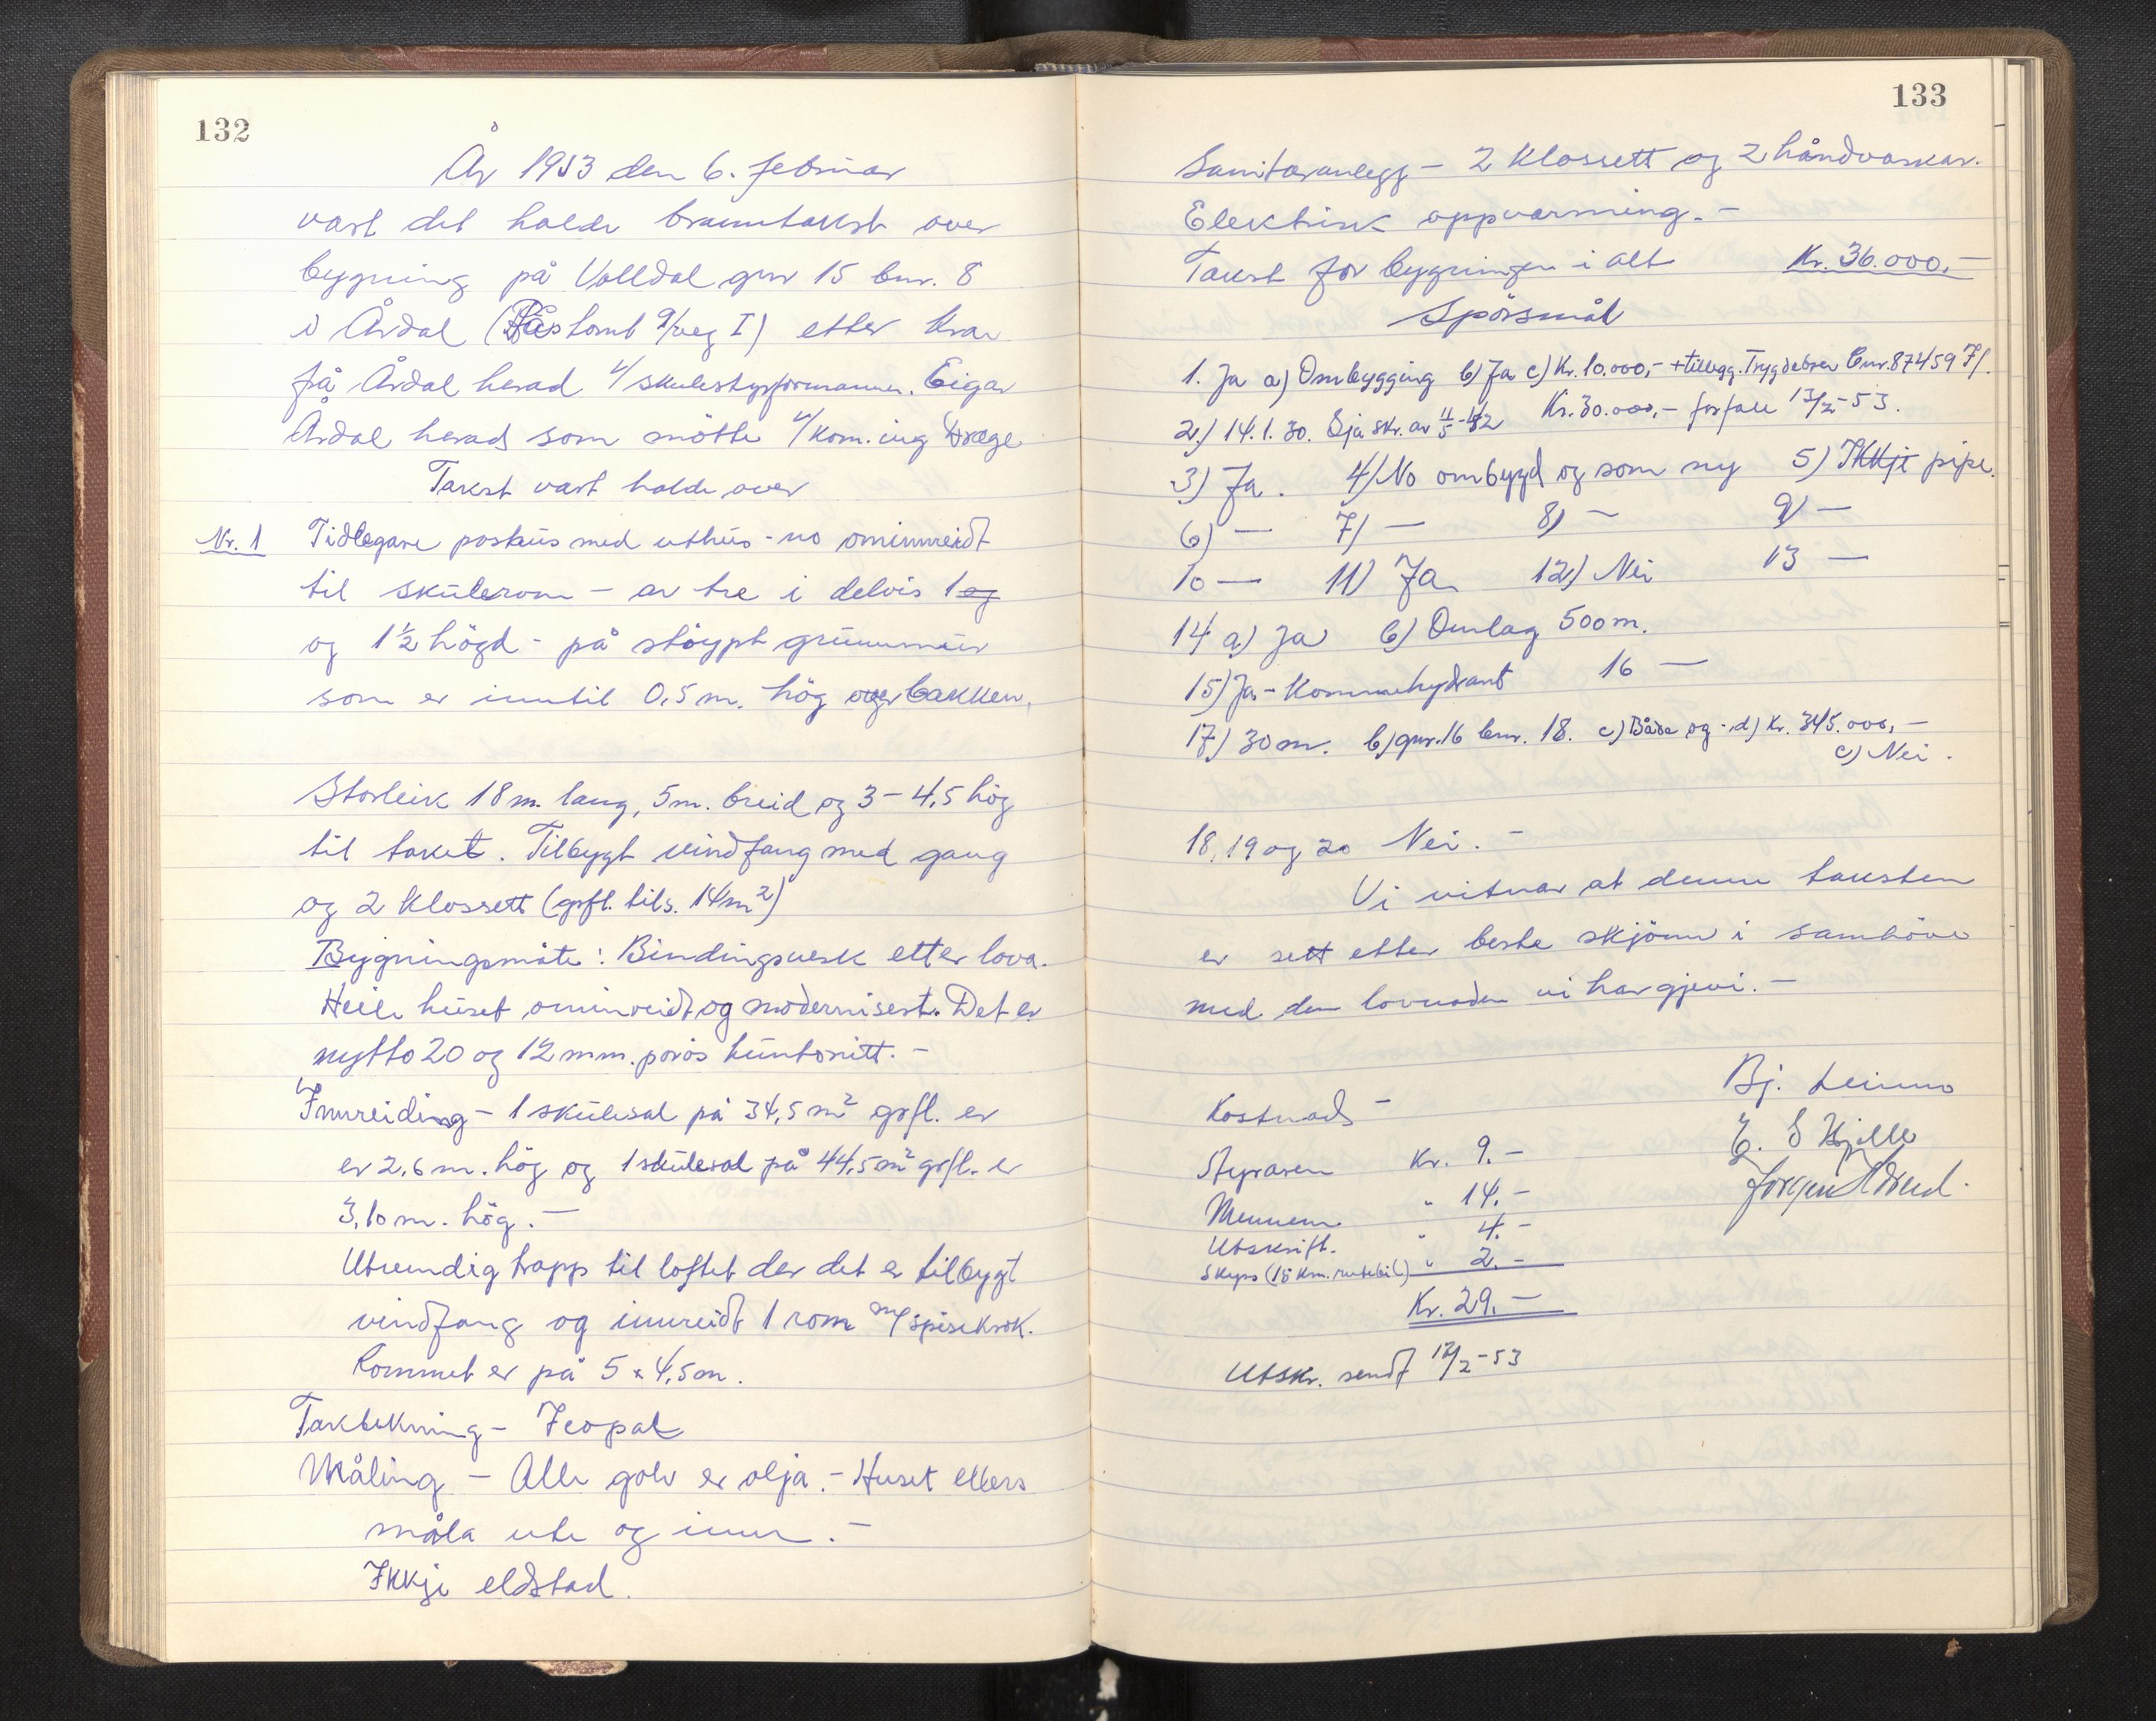 132
År 1953 den 6. februar
vart det halde branntakst over
bygning på Volldal gnr 15 bnr. 8
i Årdal ( tomt 9/veg I) etter krav
frå Årdal herad v/skulestyrformannen. Eigar
Årdal herad som møtte v/kom. ing Dræge
Takst vart halde over
Nr. 1 Tidlegare posthus med uthus - no ominnreidt
til skulerom - av tre i delvis 1 og
og 1½ högd - på stöypt grunnmur
som er inntil 0,5 m. hög over bakken.
Storleik 18 m. lang, 5 m. breid og 3 - 4,5 hög
til taket. Tilbygt vindfang med gang
og 2 klossett (grfl. tils. 14 m²)
Bygningsmåte: Bindingsverk etter lova.
Heile huset ominnreidt og modernisert. Det er
nytto 20 og 12 mm. porös huntonitt. -
Innreiding - 1 skulesal på 34,5 m² grfl. er
er 2,6 m. hög og 1 skulesal på 44,5 m² grfl. er
3,10 m. hög. -
Utvendig trapp til loftet der det er tilbygt
vindfang og innreidt 1 rom m/spisekrok.
Rommet er på 5 x 4,5 m.
Taktekning - Icopal
Måling - Alle golv er olja. - Huset ellers
måla ute og inne. -
Ikkje eldstad.
133
Sanitæranlegg - 2 klossett og 2 håndvaskar.
Elektrisk oppvarming. -
Takst for bygningen i alt Kr. 36.000,-
Spörsmål
1. Ja a) Ombygging b) Ja c) Kr. 10.000,- + tillegg. Trygdebrev bnr. 87459 7/.
2.) 14.1.30. Sjå skr. av 11/5-42 Kr. 30.000,- forfall 13/2-53.
3) Ja. 4) No ombygd og som ny 5) Ikkje pipe.
6) — 7) — 8) — 9) —
10 — 11) Ja 12) Nei 13 —
14 a) Ja b) Omlag 500 m.
15) Ja - Kommehydrant 16 —
17) 30 m. b) gnr. 16 bnr. 18. c) Båda og - d) Kr. 345.000,-
e) Nei.
18, 19 og 20 Nei. -
Vi vitnar at denne taksten
er sett etter beste skjönn i samhöve
med den lovnaden vi har gjevi. -
Bj. Leirmo
E. S Hjelle
Jørgen
Kostnad -
Styraren Kr. 9. -
Mennene " 14. -
Utskrift. " 4. -
Skyss (15 km. rutebil) " 2. -
Kr. 29. -
Utskr. sendt 12/2-53